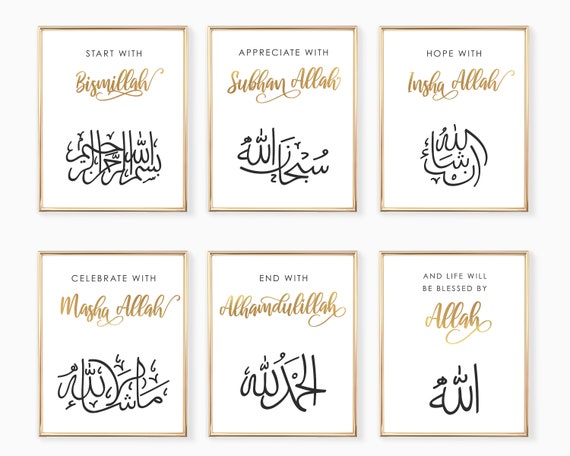 START WITH
Bismillah
بسم الله الرحمن الرحيم
APPRECIATE WITH
Subhan Allah
سبحان الله
HOPE WITH
Insha Allah
إن شاء الله
CELEBRATE WITH
Masha Allah
ما شاء الله
END WITH
Alhamdulillah
الحمد لله
AND LIFE WILL
BE BLESSED BY
Allah
الله